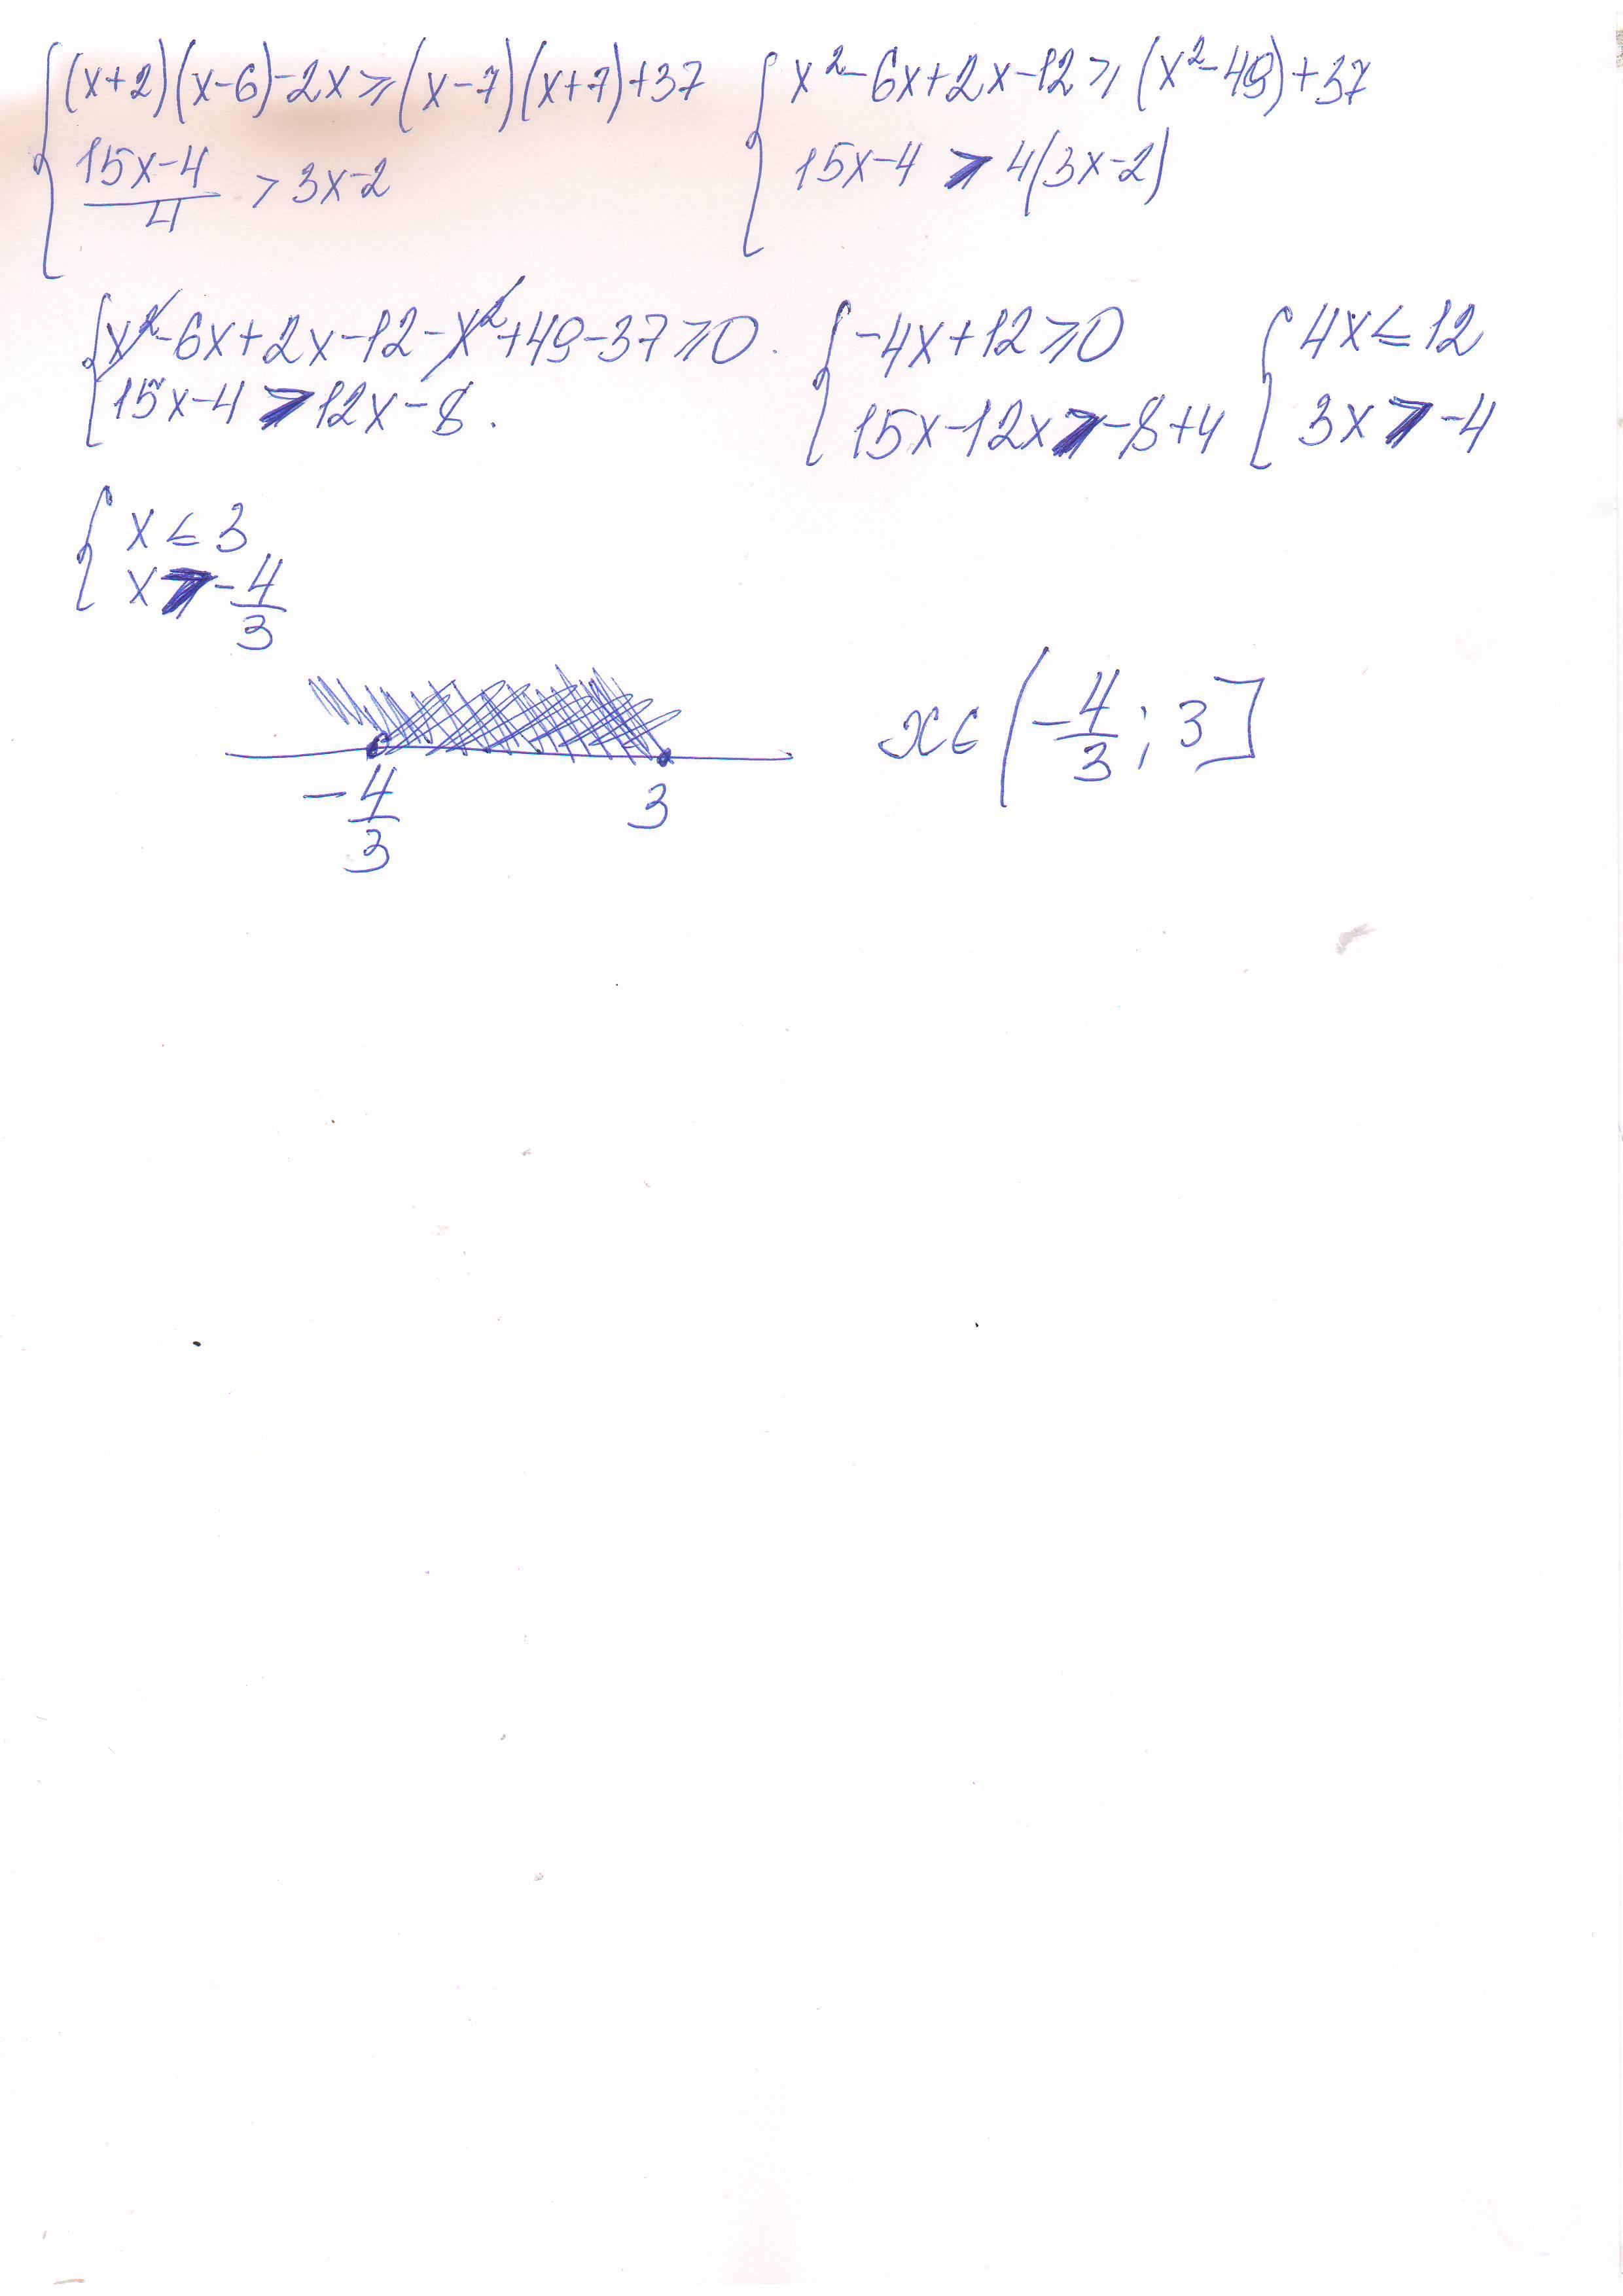 (x+2)(x-6)-2x⩾(x-7)(x+7)+37
15x-4
4
> 3x-2
x²-6x+2x-12⩾(x²-49)+37
15x-4 > 4(3x-2)
x²-6x+2x-12-x²+49-37⩾0
15x-4>12x-8.
-4x+12⩾0
15x-12x>-8+4
4x⩽12
3x>-4
x⩽3
x>-4/3
-4/3
3
x∈(-4/3; 3]